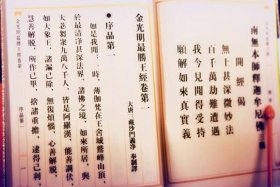 南無本師釋迦牟尼佛
開經偈
無上甚深微妙法
百千萬劫難遭遇
我今見聞得受持
願解如來真實義
金光明最勝王經卷第一
大唐三藏沙門義淨奉制譯
序品第一
如是我聞：一時，薄伽梵在王舍城鷲峰山頂，
於最清淨甚深法界，諸佛之境，如來所居，與
大苾芻眾九萬八千人，皆是阿羅漢，能善調伏
如大象王，諸漏已除，無復煩惱，心善解脫，
慧善解脫，所作已畢，捨諸重擔，逮得己利
金光明最勝王經卷第一
序品第一